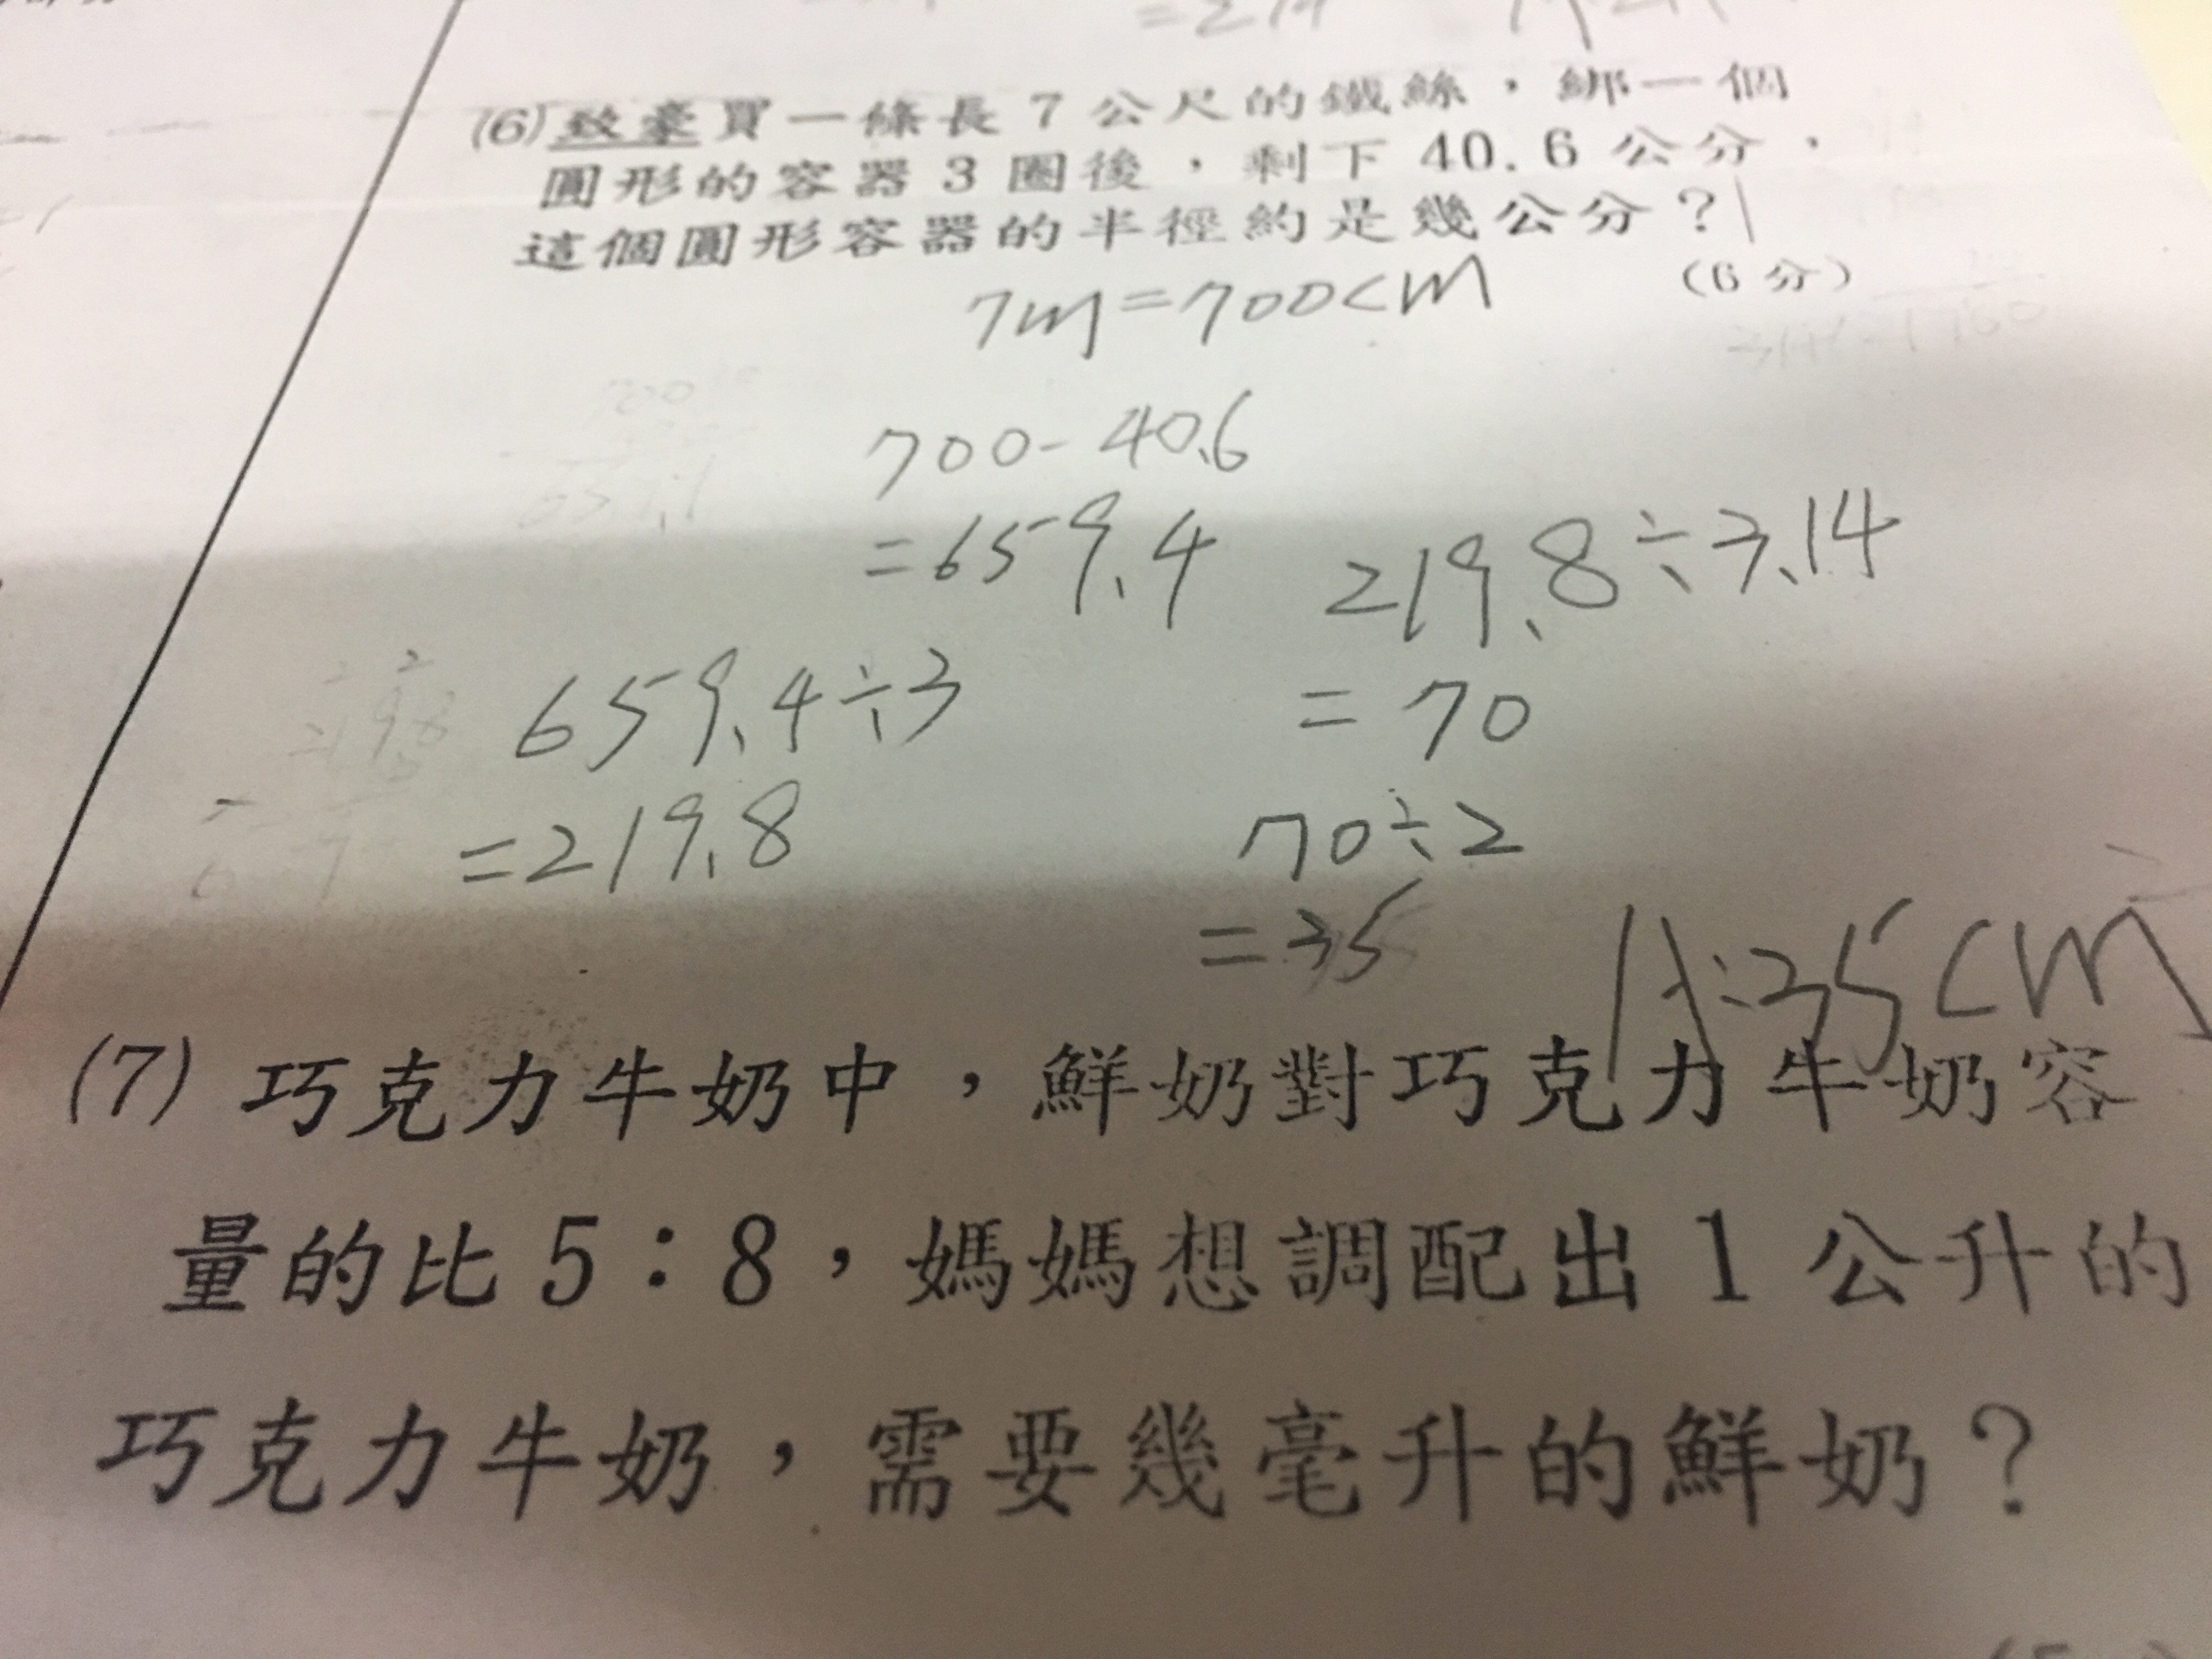 (6)致豪買一條長7公尺的鐵絲,綁一個
圓形的容器3圈後,剩下40.6公分,
這個圓形容器的半徑約是幾公分?
(6分)
7m=700cm
700-40.6
=659.4
659.4÷3
=219.8
219.8÷3.14
=70
70÷2
=35
A:35cm
(7)巧克力牛奶中,鮮奶對巧克力牛奶容
量的比5:8,媽媽想調配出1公升的
巧克力牛奶,需要幾毫升的鮮奶?